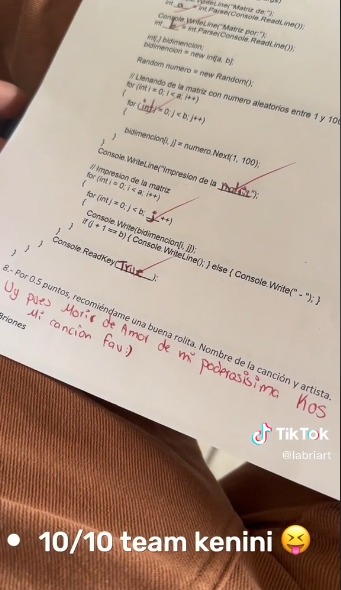 Console.WriteLine("Matriz de:");
int a = int.Parse(Console.ReadLine());
Console.WriteLine("Matriz por:");
int = int.Parse(Console.ReadLine());
int[,] bidimencion;
bidimencion = new int[a, b];
Random numero = new Random();
// Llenando de la matriz con numero aleatorios entre 1 y 100
for (int i = 0; i < a; i++)
{
for (int j = 0; j < b; j++)
{
bidimencion[i, j] = numero.Next(1, 100);
}
}
Console.WriteLine("Impresion de la matriz");
// Impresion de la matriz
for (int i = 0; i < a; i++)
{
for (int j = 0; j < b; j++)
{
Console.Write(bidimencion[i, j]);
if (j + 1 == b) { Console.WriteLine(); } else { Console.Write(" - "); }
}
}
Console.ReadKey(True);
}
}
8.- Por 0.5 puntos, recomiéndame una buena rolita. Nombre de la canción y artista.
Uy pues Morir de Amor de mi poderosisima Kos
Mi canción fav:)
Briones
TikTok
@labriart
• 10/10 team kenini 😝